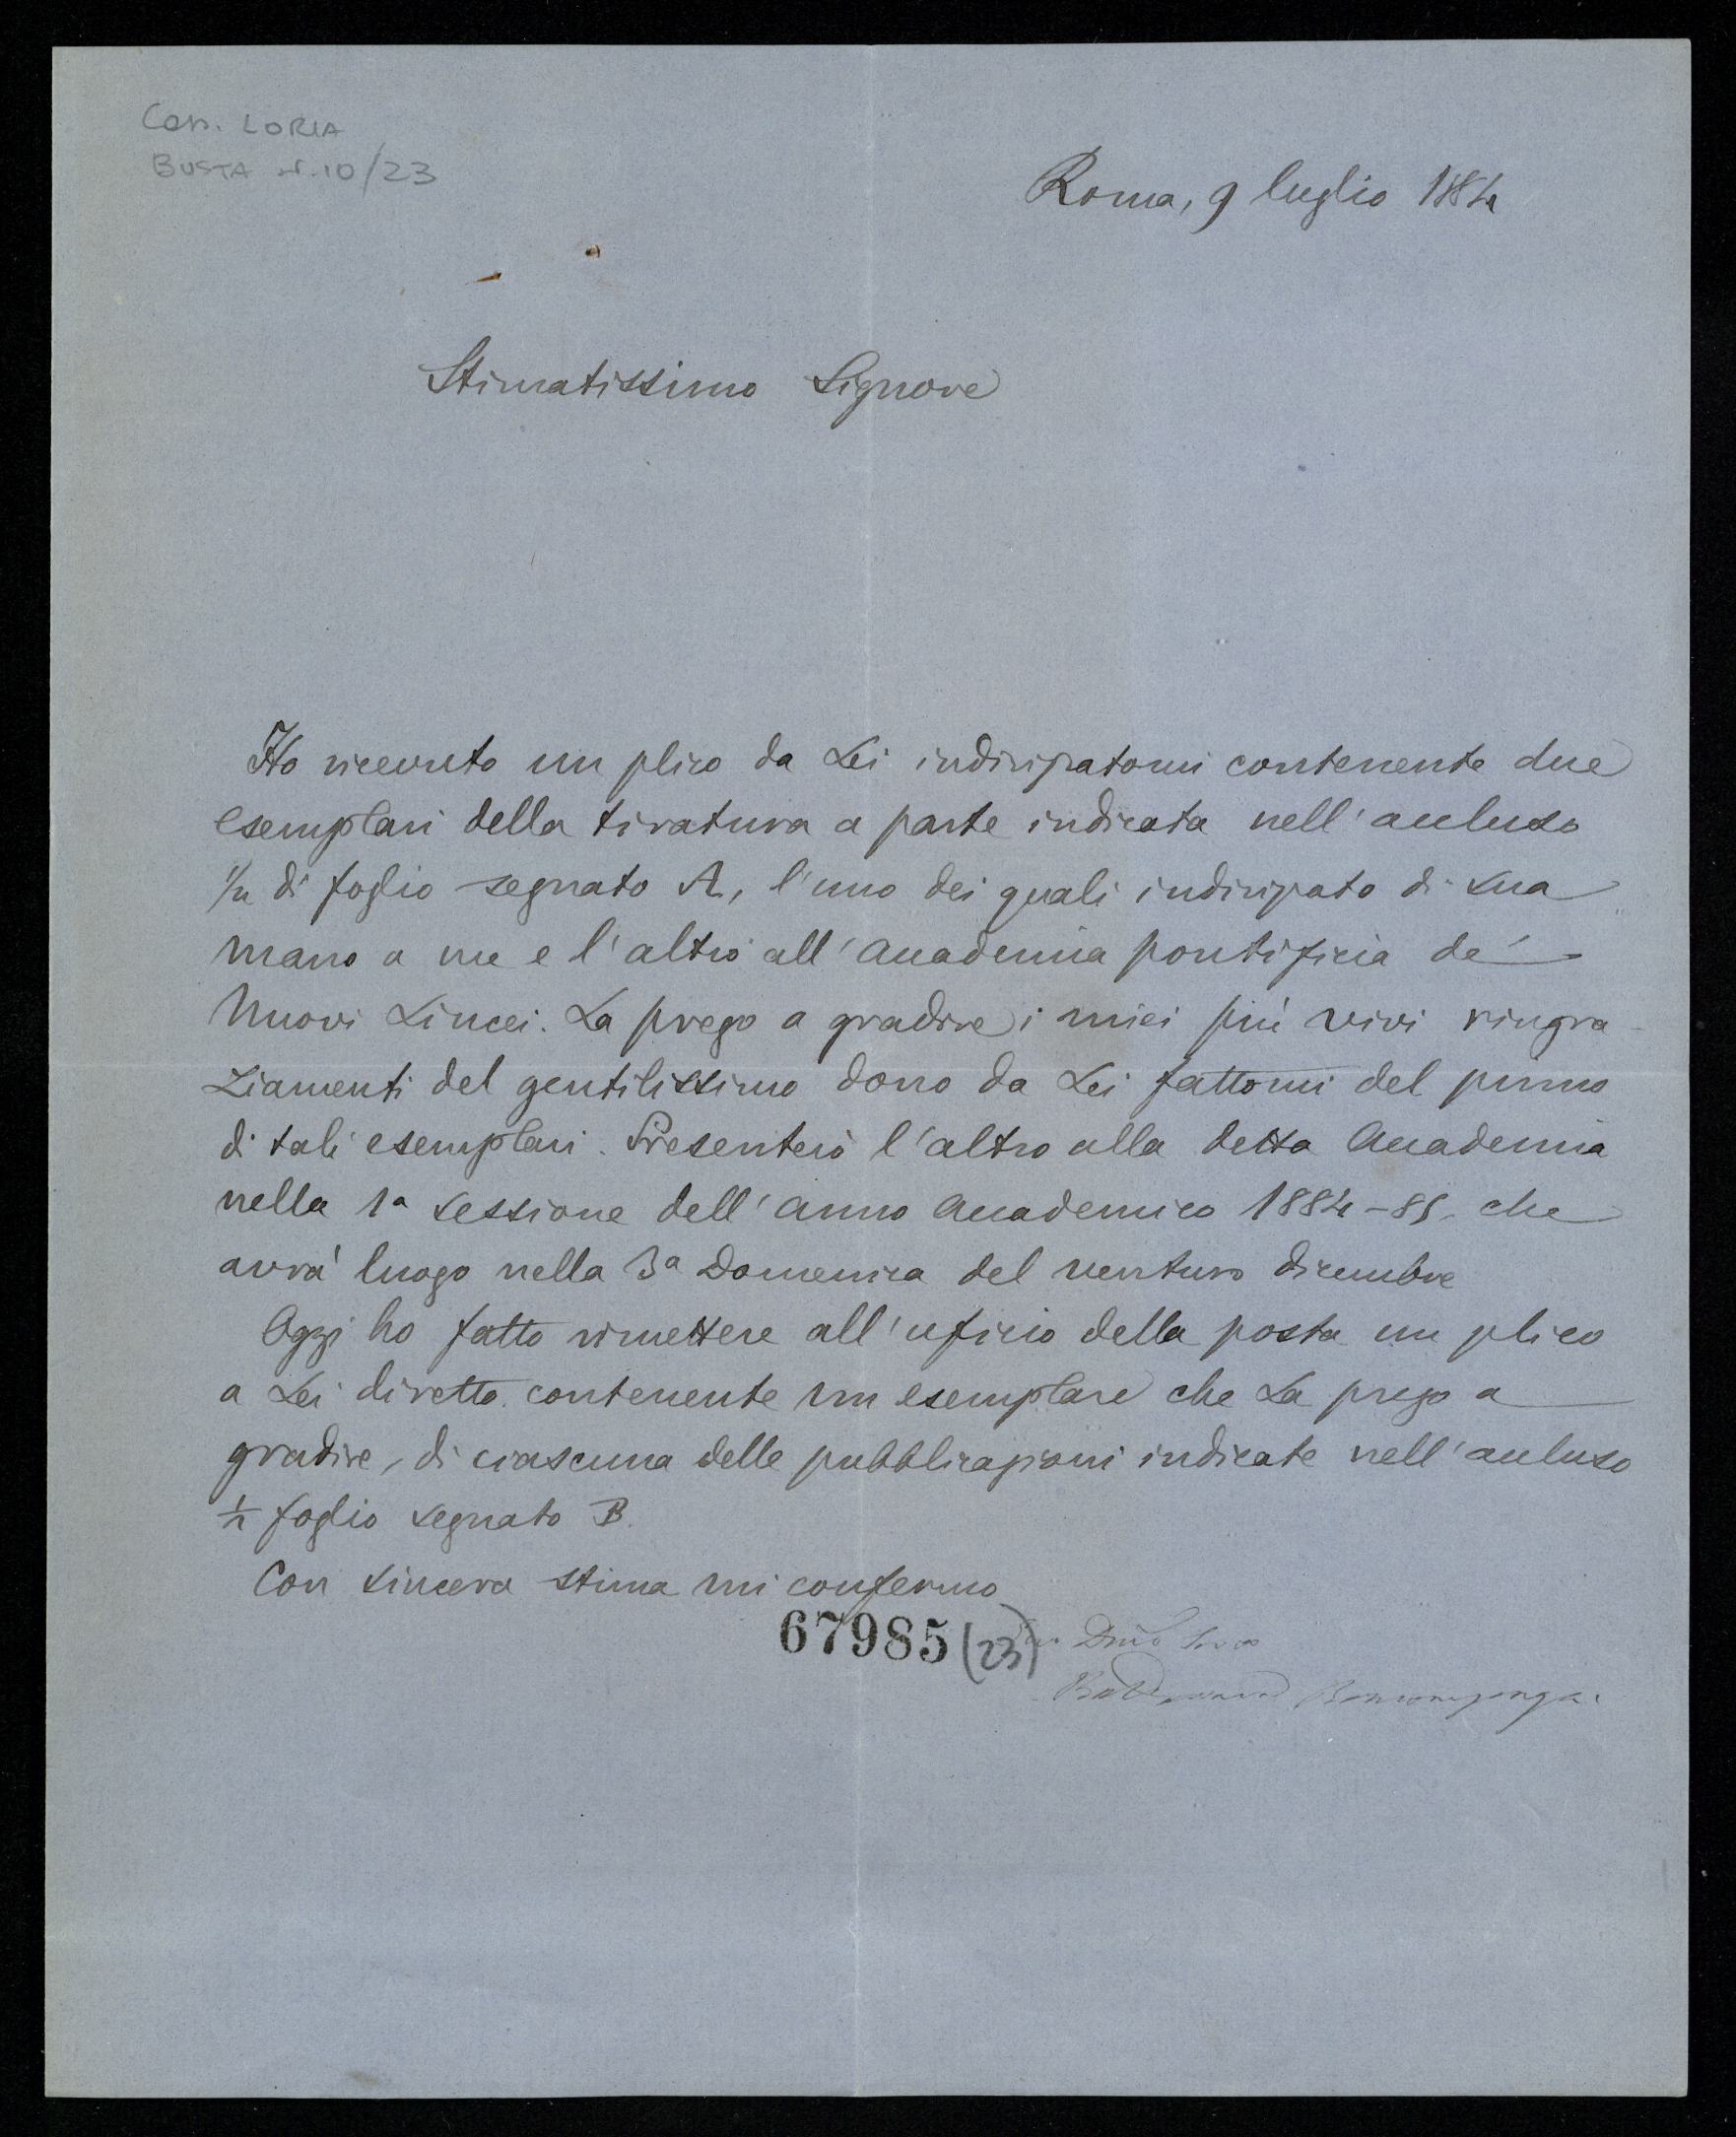 Corr. LORIA
BUSTA N. 10/23
Roma, 9 luglio 1884
Stimatissimo Signore
Ho ricevuto un plico da Lei indirizzatomi contenente due
esemplari della tiratura a parte indicata nell'accluso
1/2 di foglio segnato A, l'uno dei quali indirizzato di sua
mano a me e l'altro all'Accademia pontificia de'
Nuovi Lincei. La prego a gradire i miei più vivi ringra-
ziamenti del gentilissimo dono da Lei fattomi del primo
di tali esemplari. Presenterò l'altro alla detta Accademia
nella 1a sessione dell'anno Accademico 1884-85, che
avrà luogo nella 3a Domenica del venturo dicembre
Oggi ho fatto rimettere all'uficio della posta un plico
a Lei diretto contenente un esemplare che La prego a
gradire, di ciascuna delle pubblicazioni indicate nell'accluso
1/2 foglio segnato B.
Con sincera stima mi confermo
67985 (23)
Baldassarre Boncompagni